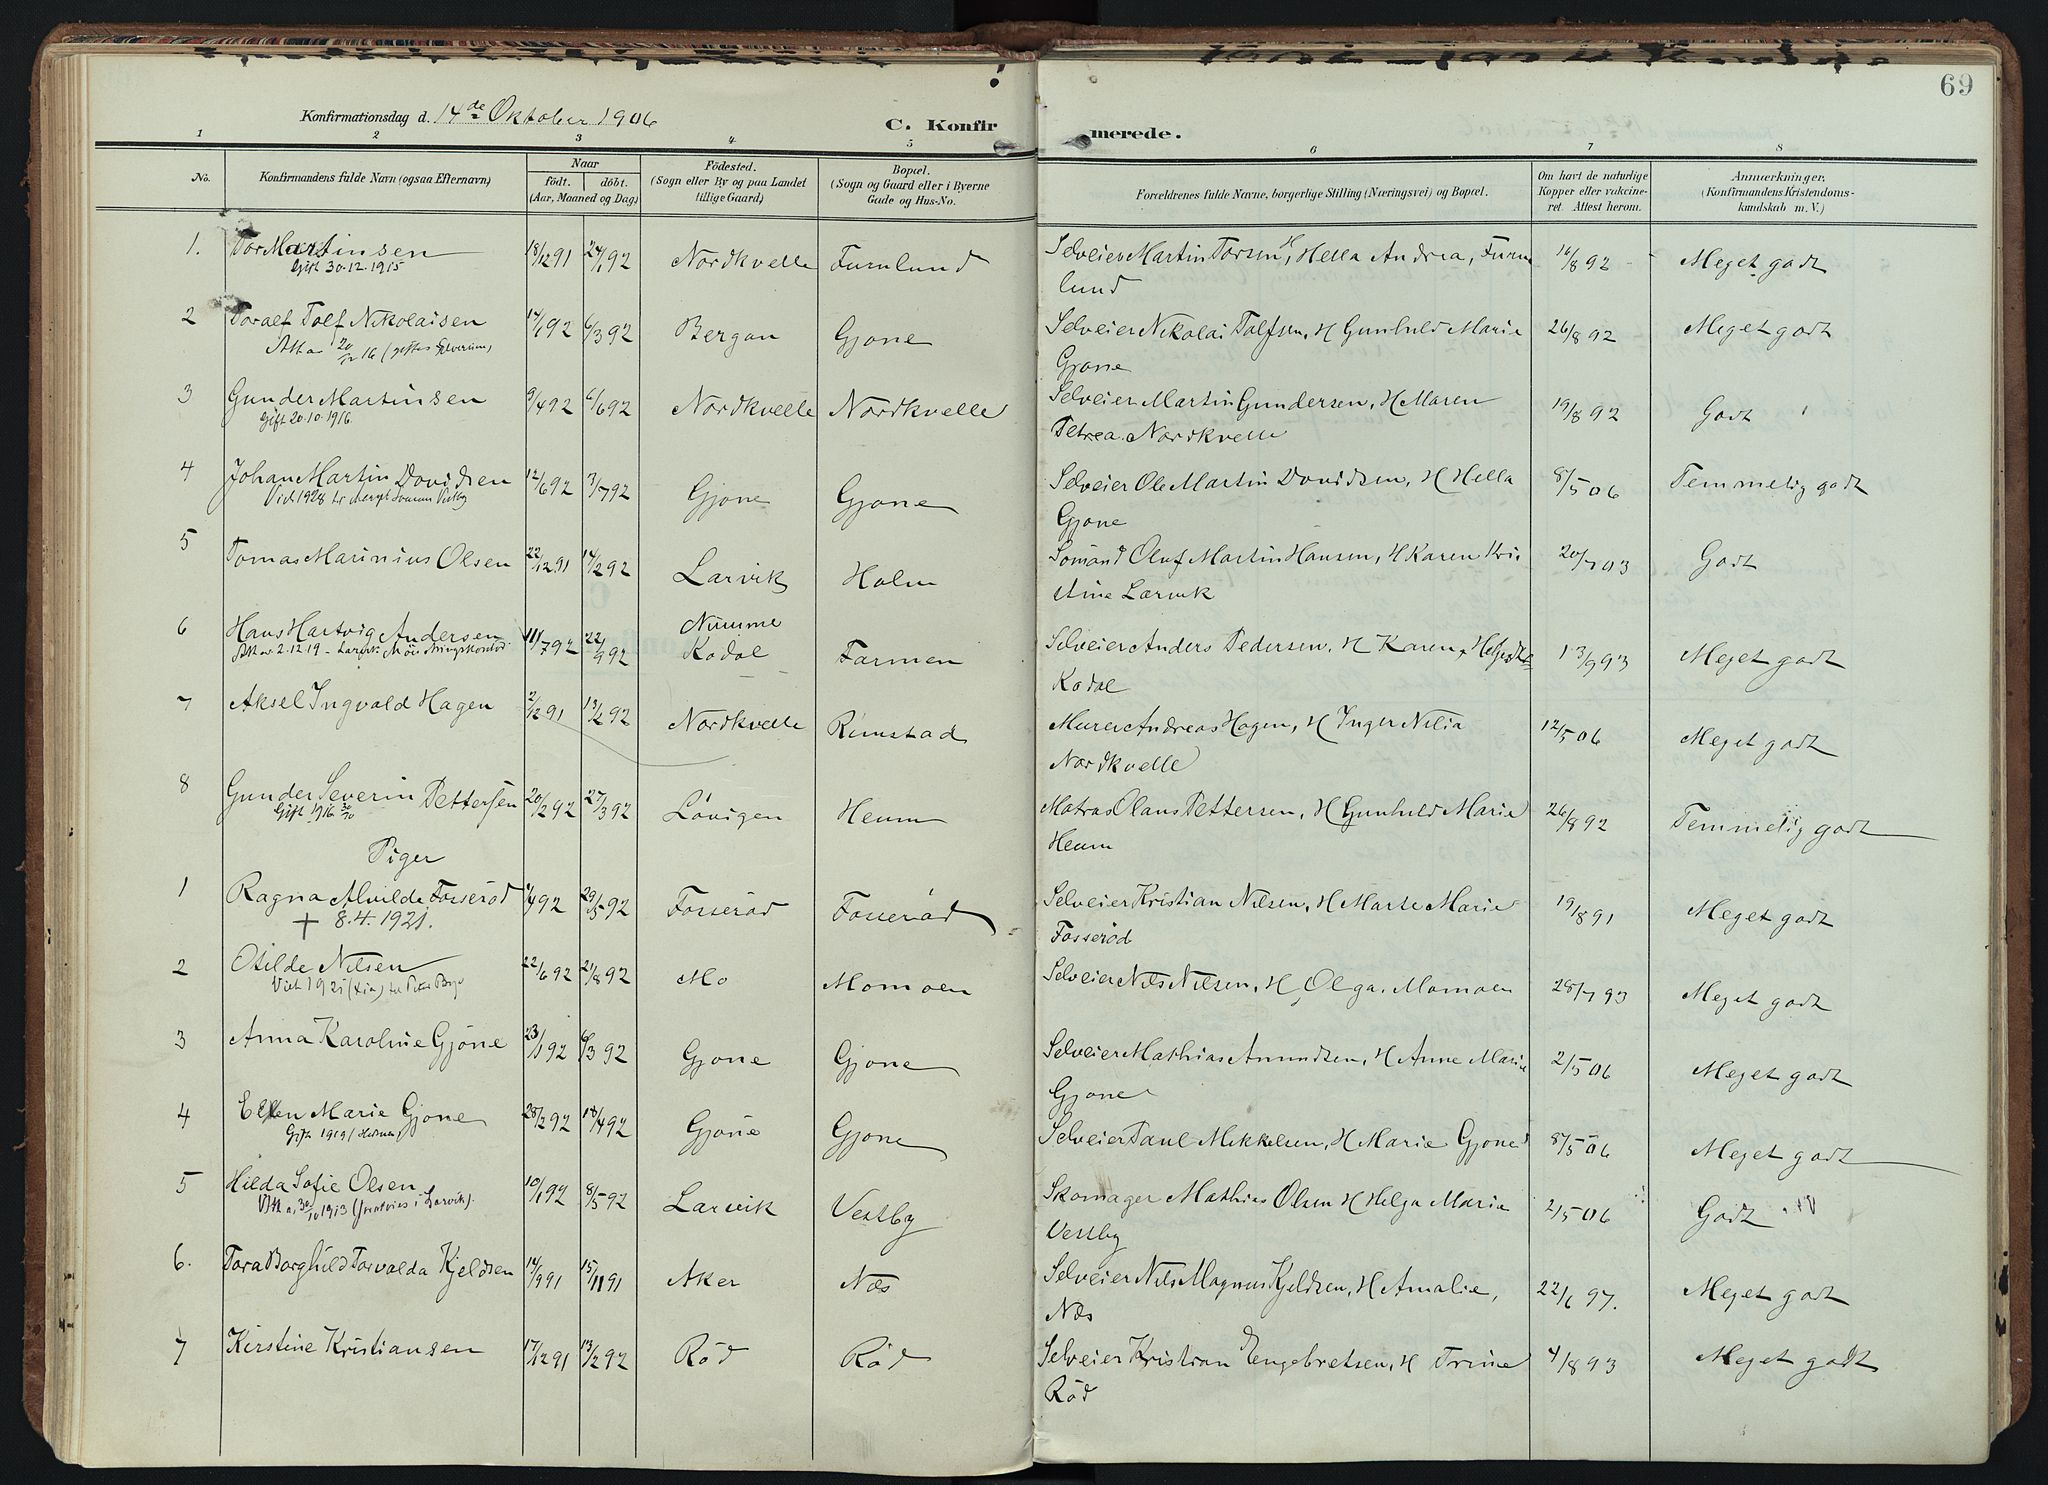 69
Konfirmationsdag d. 14de Oktober 1906
C. Konfir
merede.
1 2 3 4 5 6 7 8
No.
Konfirmandens fulde Navn (ogsaa Efternavn)
Naar
født. døbt.
(Aar, Maaned og Dag)
Fødested.
(Sogn eller By og paa Landet
tillige Gaard)
Bopæl.
(Sogn og Gaard eller i Byerne
Gade og Hus-No.
Forældrenes fulde Navne, borgerlige Stilling (Næringsvei) og Bopæl.
Om havt de naturlige
Kopper eller vakcine-
ret. Attest herom.
Anmærkninger,
(Konfirmandens Kristendoms-
kundskab m. V.)
1. Tor Martinsen 18/12 91 24/1 92 Nordkvelle Furulund Selveier Martin Torsen, H Hella Andrea, Furu 16/8 92 Meget godt
Gift 30.12.1915
lund
2 Toralf Tolf Nikolaisen 14/1 92 6/3 92 Bergan Gjone Selveier Nikolai Tolfsen, H Gunhild Marie 26/8 92 Meget godt
Gjone
3 Gunder Martinsen 9/4 92 6/6 92 Nordkvelle Nordkvelle Selveier Martin Gundersen, H Maren 19/8 92 Godt
Gift 20.10.1916.
Petrea. Nordkvelle
4 Johan Martin Davidsen 12/6 92 3/7 92 Gjone Gjone Selveier Ole Martin Davidsen, H Hella 8/5 06 Temmelig godt
Viet 1928
Gjone
5 Tomas Marinius Olsen 22/12 91 14/2 92 Larvik Holm Sømand Oluf Martin Hansen, H Karen Kri 20/7 03 Godt
stine Larvik
6 Hans Hartvig Andersen 11/7 92 22/9 92 Numme Kodal Farmen Selveier Anders Pedersen, H Karen Helgedt. 13/9 93 Meget godt
2.12.19 - Larvik Mønstringskontor
Kodal
7 Aksel Ingvald Hagen 2/12 91 13/2 92 Nordkvelle Rimstad Murer Andreas Hagen, H Inger Nilia 12/5 06 Meget godt
Nordkvelle
8 Gunder Severin Pettersen 20/2 92 27/3 92 Løvigen Heum Matros Olaus Pettersen, H Gunhild Marie 26/8 92 Temmelig godt
Gift 1916 30/10
Heum
Piger
1 Ragna Alvilde Fosserød 4/4 92 29/5 92 Fosserød Fosserød Selveier Kristian Nilsen, H Marte Marie 19/8 91 Meget godt
+ 8.4.1921.
Fosserød
2 Otilde Nilsen 22/6 92 21/8 92 Mo Momoen Selveier Nils Nilsen, H Olga, Momoen 28/7 93 Meget godt
Viet 1921
3 Anna Karoline Gjone 23/1 92 6/3 92 Gjone Gjone Selveier Mathias Amundsen, H Anne Marie 2/5 06 Meget godt
Gjone
4 Ellen Marie Gjone 28/2 92 18/4 92 Gjone Gjone Selveier Paul Mikkelsen, H Marie Gjone 8/5 06 Meget godt
Gift 1919 (Hedrum)
5 Hilda Sofie Olsen 10/1 92 8/5 92 Larvik Vestby Skomager Mathias Olsen H Helga Marie 2/5 06 Godt
30/10 1913 i Larvik).
Vestby
6. Tora Borghild Torvalda Kjeldsen 14/9 91 15/11 91 Aker Næs Selveier Nils Magnus Kjeldsen, H Amalie, 22/6 97. Meget godt
Næs
7 Kirstine Kristiansen 17/12 91 13/2 92 Rød Rød Selveier Kristian Engebretsen, H Trine 4/8 93 Meget godt
Rød